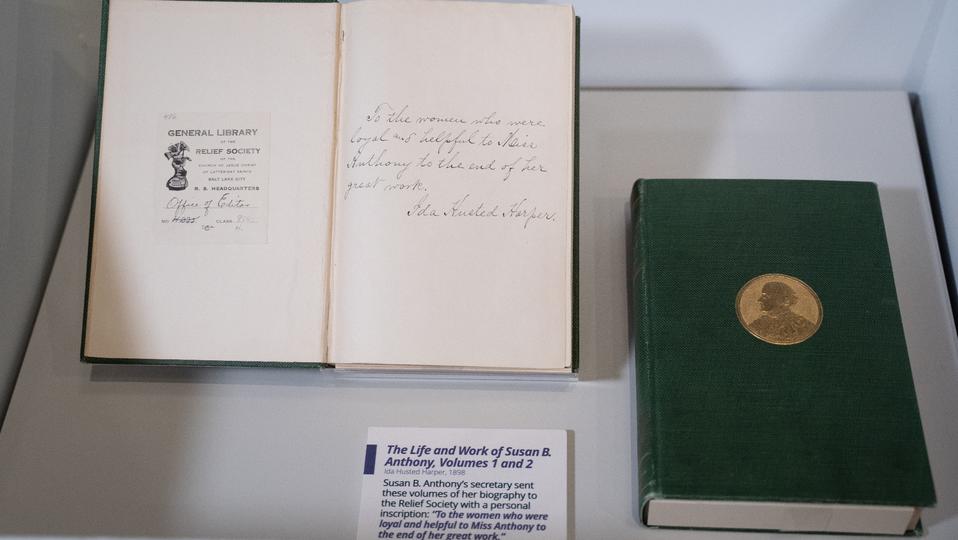 496
GENERAL LIBRARY
OF THE
RELIEF SOCIETY
OF THE
CHURCH OF JESUS CHRIST
OF LATTER-DAY SAINTS
SALT LAKE CITY
R. S. HEADQUARTERS
Office of Editor
NO. CLASS
To the women who were
loyal and helpful to Miss
Anthony to the end of her
great work.
Ida Husted Harper.
The Life and Work of Susan B.
Anthony, Volumes 1 and 2
Ida Husted Harper, 1898
Susan B. Anthony's secretary sent
these volumes of her biography to
the Relief Society with a personal
inscription: "To the women who were
loyal and helpful to Miss Anthony to
the end of her great work."